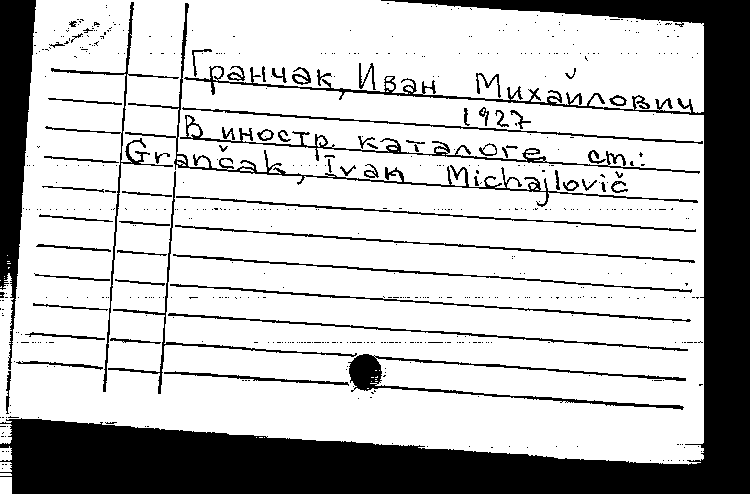 Гранчак, Иван Михайлович
1927
В иностр. каталоге ст.:
Grančak, Ivan Michajlovič